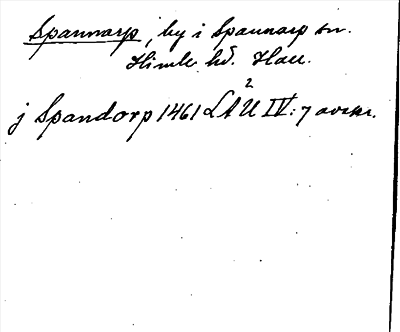 Spannarp, by i Spannarp sn.
Himle hd. Hall.
j Spandorp 1461 LAU² IV: 7 avskr.